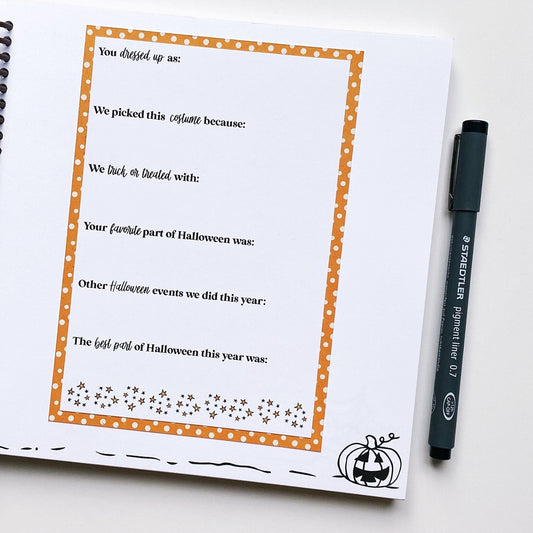 You dressed up as:
We picked this costume because:
We trick or treated with:
Your favorite part of Halloween was:
Other Halloween events we did this year:
The best part of Halloween this year was:
STAEDTLER
pigment liner 0.7